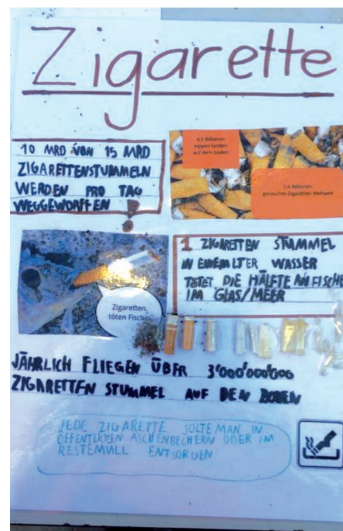 Zigarette
10 MRD VON 15 MRD
ZIGARETTENSTUMMELN
WERDEN PRO TAG
WEGGEWORFFEN!
4,5 Billionen
Kippen landen
auf dem Boden
5,6 Billionen
gerauchte Zigaretten Weltweit
Zigaretten
töten Fische
1 ZIGARETTEN STUMMEL
IN EINEM LITER WASSER
TÖTET DIE HÄLFTE AN FISCHE
IM GLAS/MEER
JÄHRLICH FLIEGEN ÜBER 3'000'000'000
ZIGARETTEN STUMMEL AUF DEN BODEN
JEDE ZIGARETTE SOLTE MAN IN
ÖFFENTLICHEN ASCHENBECHERN ODER IM
RESTEMÜLL ENTSORGEN